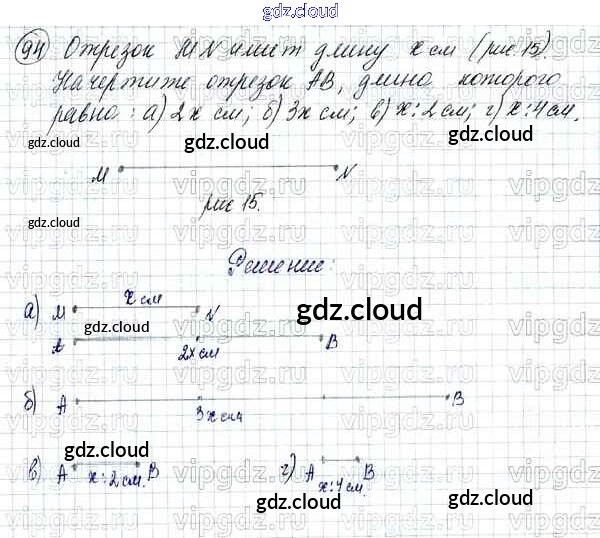 gdz.cloud
94 Отрезок MN имеет длину x см (рис 15).
Начертите отрезок AB, длина которого
равна: а) 2x см; б) 3x см; в) x:2 см; г) x:4 см.
gdz.cloud gdz.cloud
gdz.cloud
M N
gdz.cloud рис 15. gdz.cloud
Решение:
x см
а) M N gdz.cloud
gdz.cloud
A 2x см B
б) A 3x см B
gdz.cloud gdz.cloud
в) A x:2 см. B г) A x:4 см. B
gdz.cloud gdz.cloud